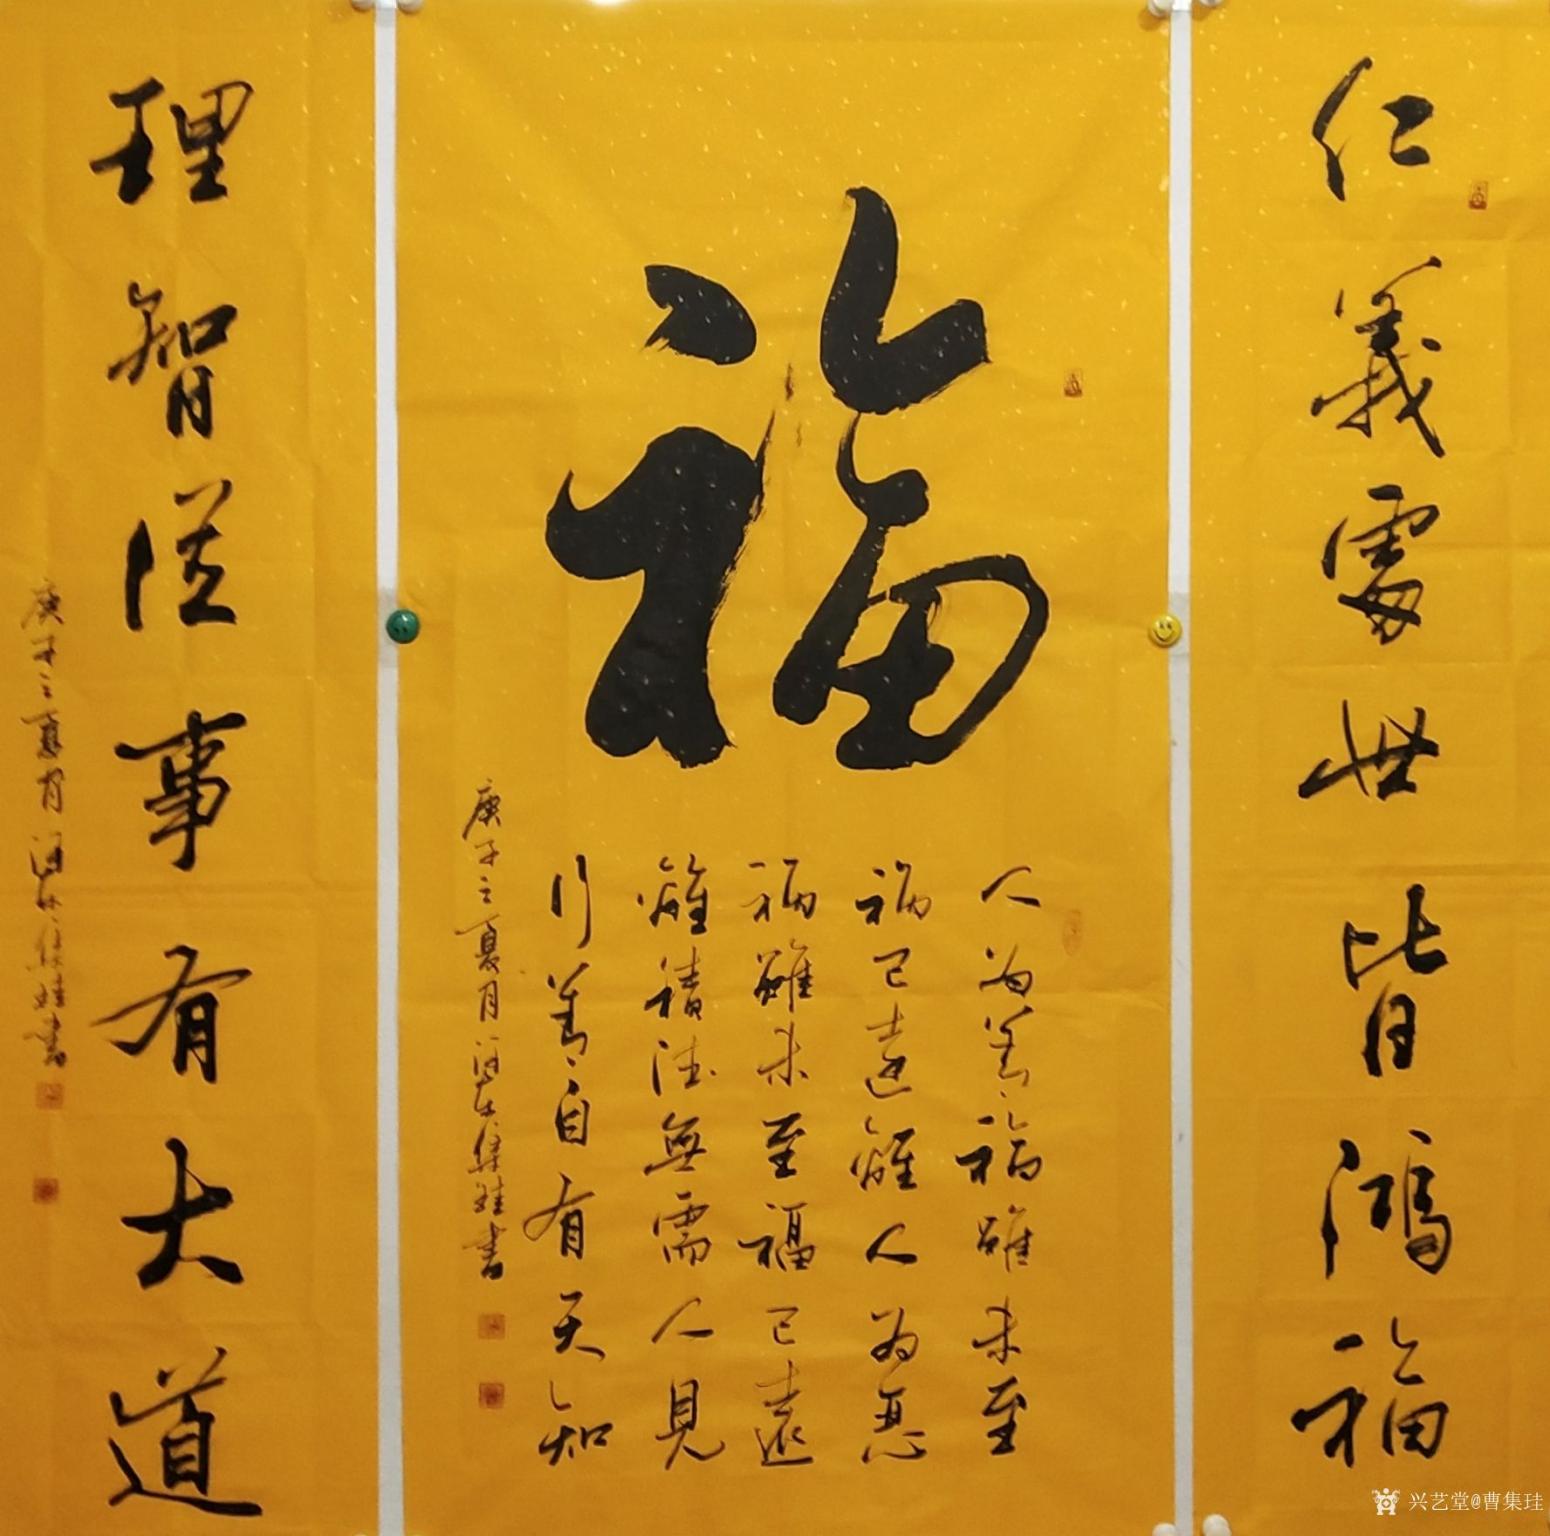 仁義處世皆鴻福
福
人為善福雖未至
禍已遠離人為惡
禍雖未至福已遠
離積德無需人見
行善自有天知
庚子之夏月
集珪書
理智從事有大道
庚子之夏月
集珪書
兴艺堂@曹集珪